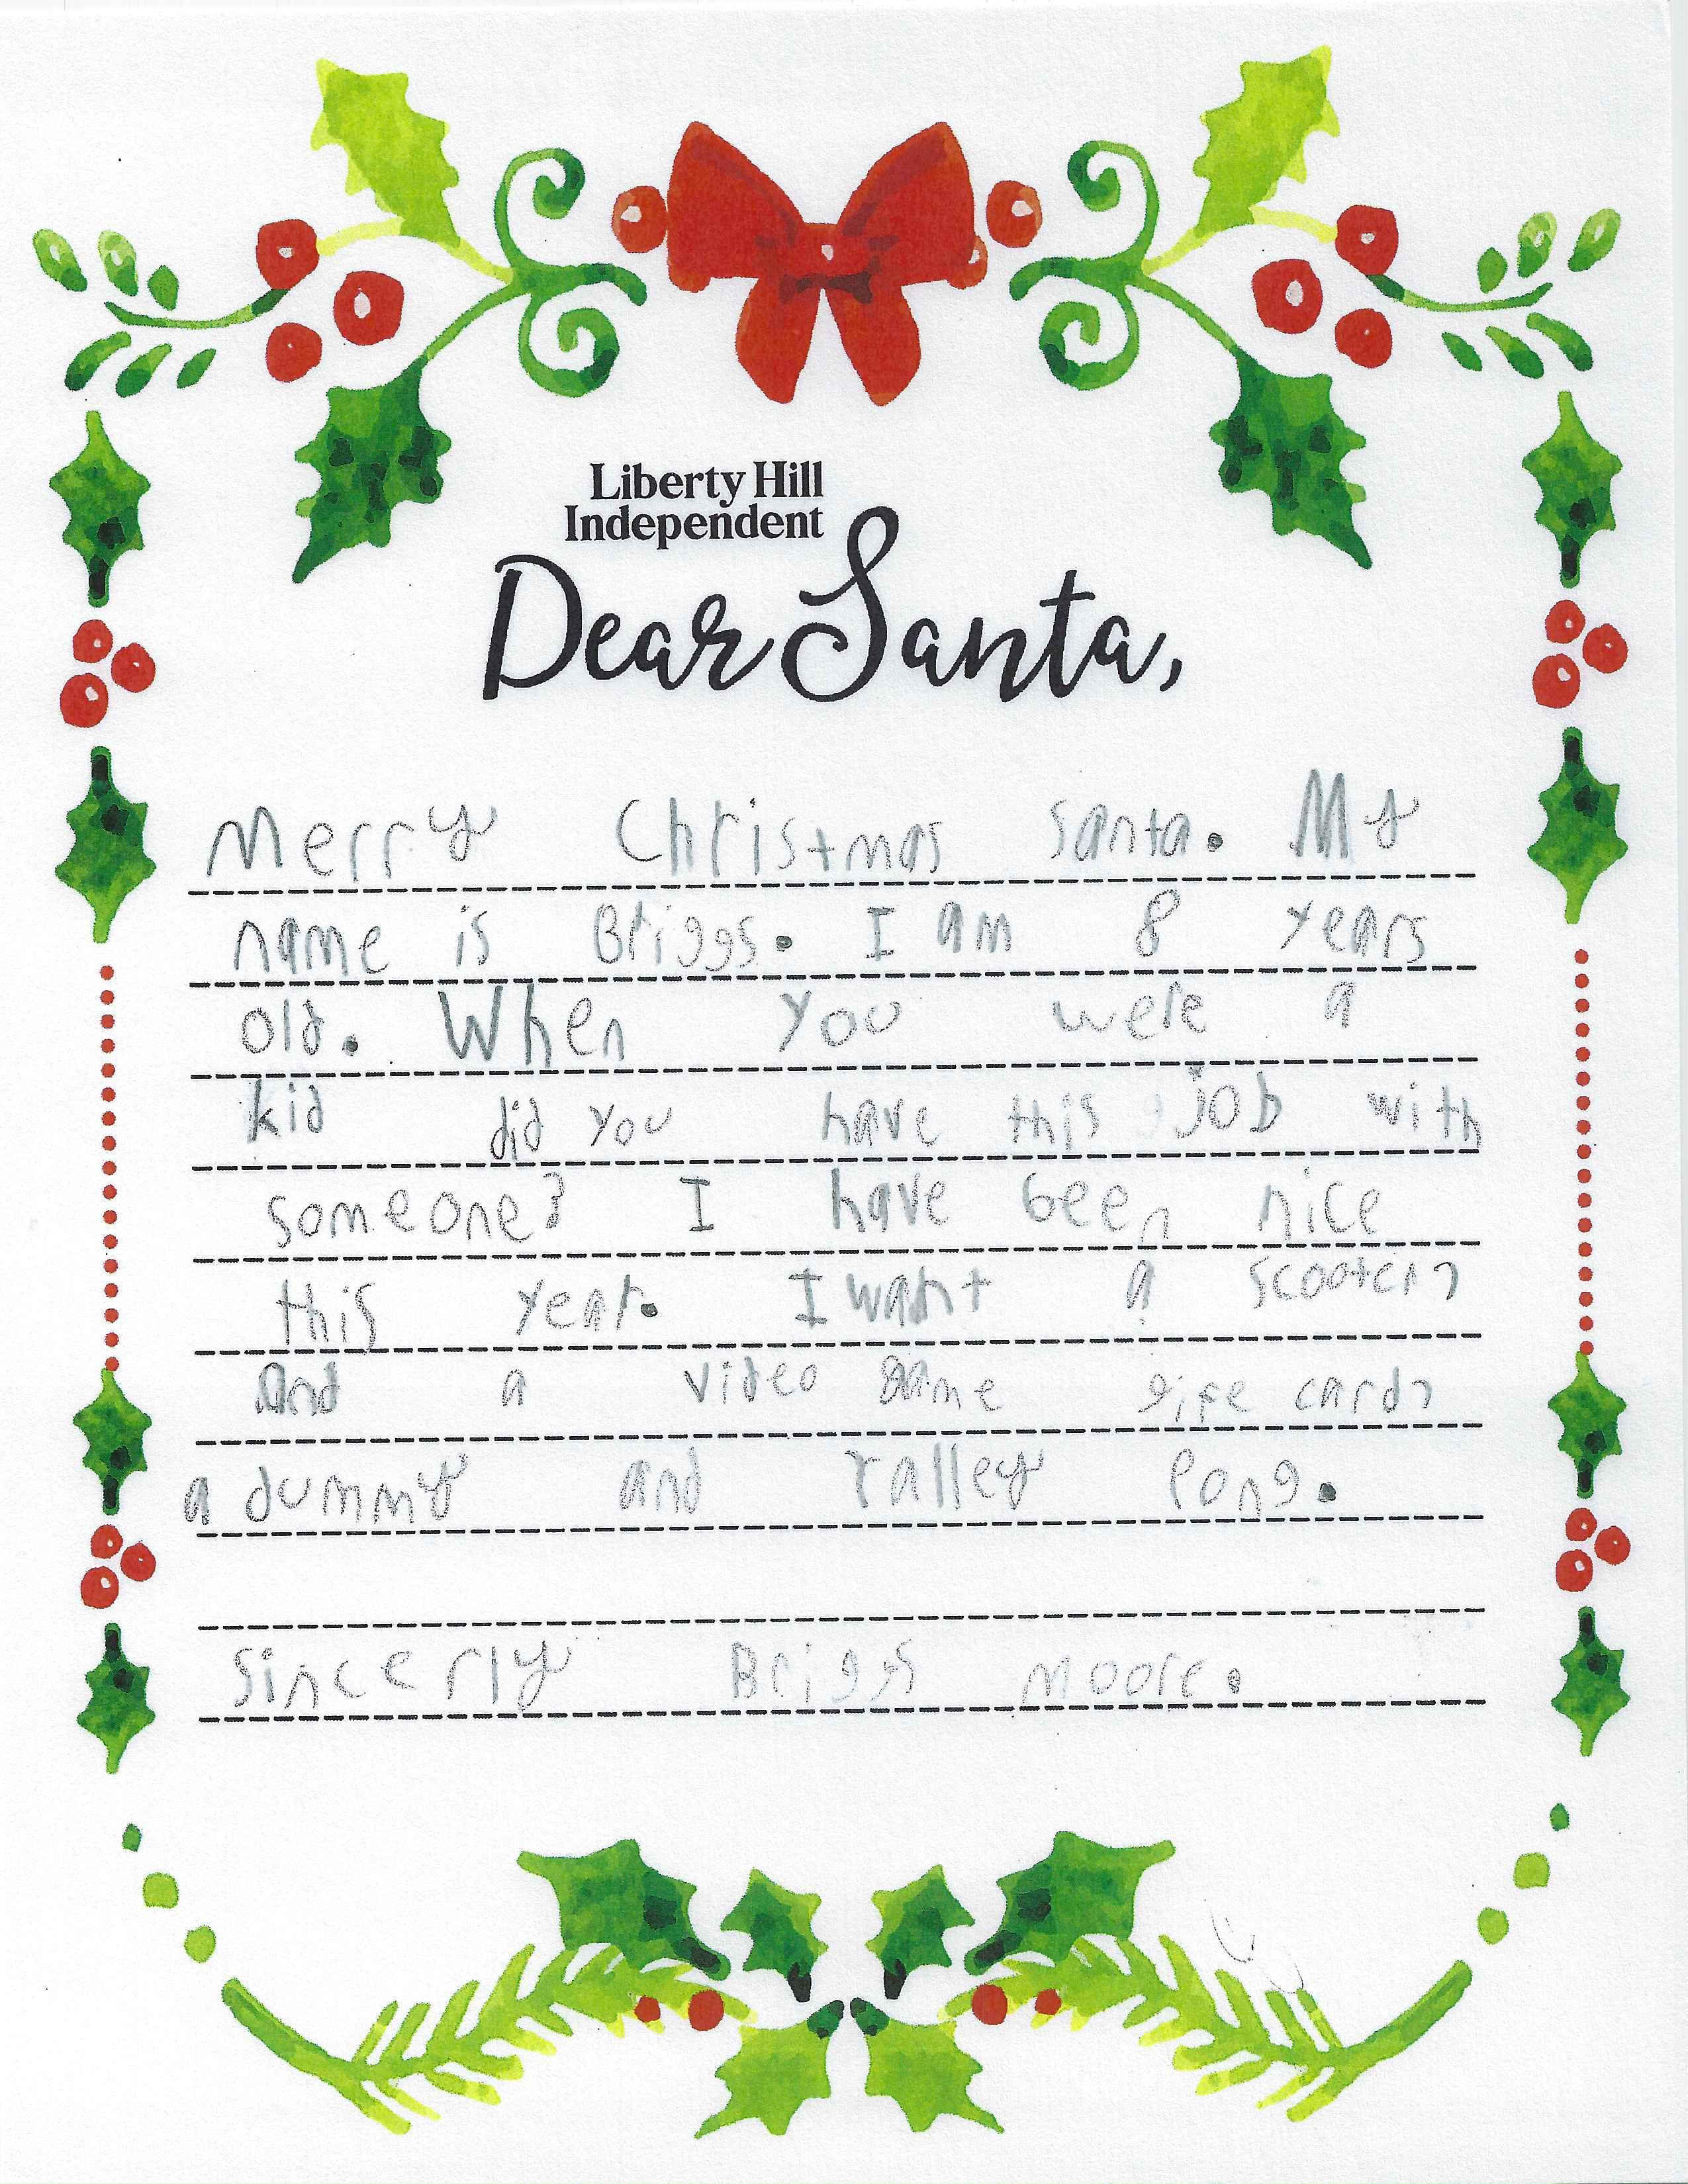 Liberty Hill
Independent
Dear Santa,
Merry Christmas Santa. My
name is Briggs. I am 8 years
old. When you were a
kid did you have this job with
someone? I have been nice
this year. I want a scooter,
and a video game gife card,
a dummy and ralley Pong.
sincerly Briggs moore.